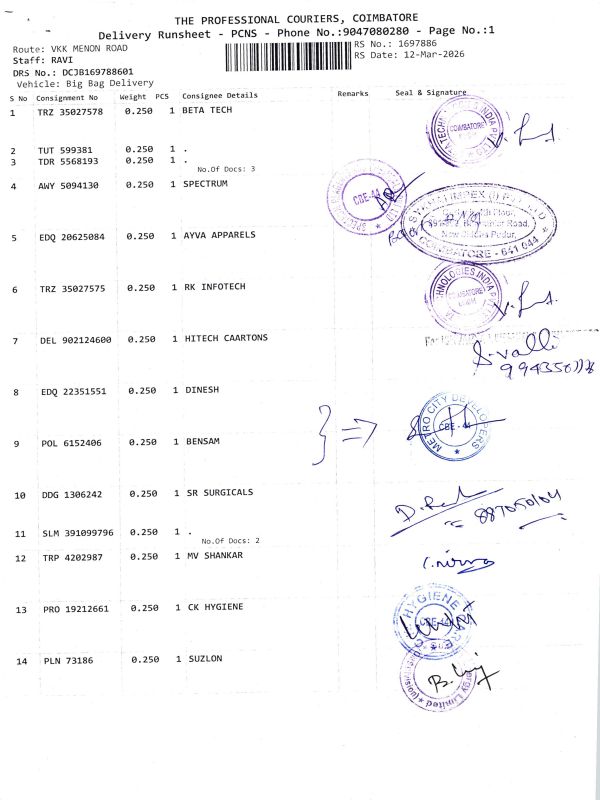 THE PROFESSIONAL COURIERS, COIMBATORE
Delivery Runsheet - PCNS - Phone No.:9047080280 - Page No.:1
Route: VKK MENON ROAD
RS No.: 1697886
Staff: RAVI
RS Date: 12-Mar-2026
DRS No.: DCJB169788601
Vehicle: Big Bag Delivery
S No Consignment No Weight PCS Consignee Details Remarks Seal & Signature
1 TRZ 35027578 0.250 1 BETA TECH
COIMBATORE
2 TUT 599381 0.250 1 .
3 TDR 5568193 0.250 1 .
No.Of Docs: 3
4 AWY 5094130 0.250 1 SPECTRUM
CBE-44
IMPEX (I) PVT. LTD
COIMBATORE - 641 044
5 EDQ 20625084 0.250 1 AYVA APPARELS
6 TRZ 35027575 0.250 1 RK INFOTECH
TECHNOLOGIES INDIA
COIMBATORE
7 DEL 902124600 0.250 1 HITECH CAARTONS
S. valli
8 EDQ 22351551 0.250 1 DINESH
METRO CITY DEVELOPERS
CBE-44
9 POL 6152406 0.250 1 BENSAM
10 DDG 1306242 0.250 1 SR SURGICALS
11 SLM 391099796 0.250 1 .
No.Of Docs: 2
12 TRP 4202987 0.250 1 MV SHANKAR
13 PRO 19212661 0.250 1 CK HYGIENE
HYGIENE CARE
14 PLN 73186 0.250 1 SUZLON
Energy Limited